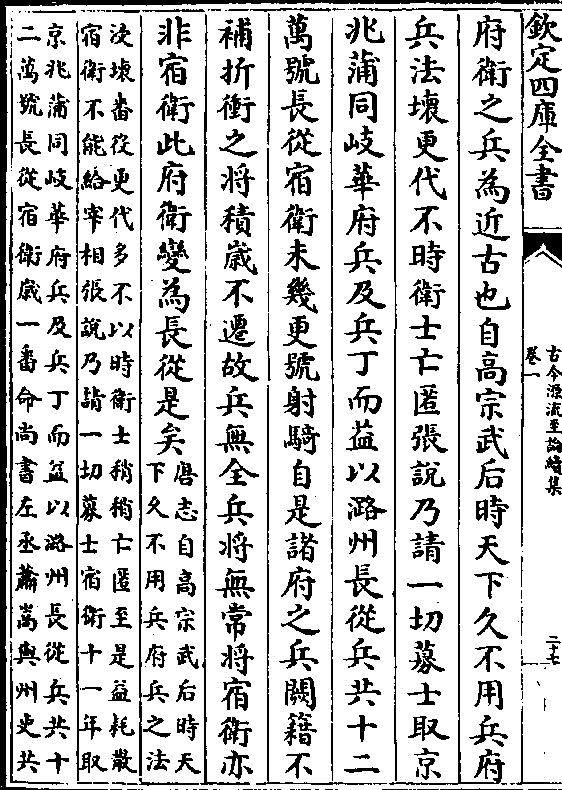 欽定四庫全書
古今源流至論續集
卷一
二十七
府衛之兵為近古也自高宗武后時天下久不用兵府
兵法壞更代不時衛士亡匿張說乃請一切募士取京
兆蒲同岐華府兵及兵丁而益以潞州長從兵共十二
萬號長從宿衛未幾更號射騎自是諸府之兵闕籍不
補折衝之將積歲不遷故兵無全兵將無常將宿衛亦
非宿衛此府衛變為長從是矣
唐志自高宗武后時天
下久不用兵府兵之法
浸壞畨役更代多不以時衛士稍稍亡匿至是益耗散
宿衛不能給宰相張說乃請一切募士宿衛十一年取
京兆蒲同岐華府兵及兵丁而益以潞州長從兵共十
二萬號長從宿衛歲一畨命尚書左丞蕭嵩與州吏共